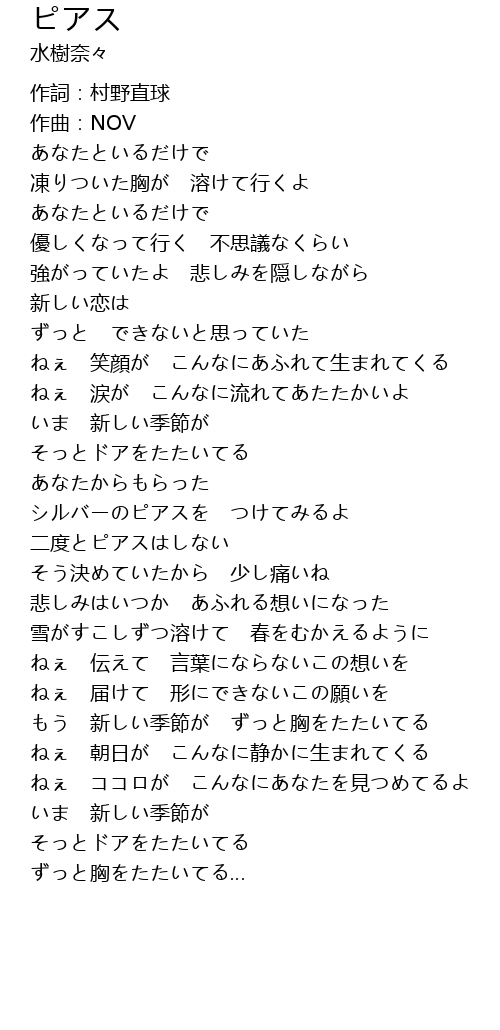 ピアス
水樹奈々
作詞：村野直球
作曲：NOV
あなたといるだけで
凍りついた胸が　溶けて行くよ
あなたといるだけで
優しくなって行く　不思議なくらい
強がっていたよ　悲しみを隠しながら
新しい恋は
ずっと　できないと思っていた
ねぇ　笑顔が　こんなにあふれて生まれてくる
ねぇ　涙が　こんなに流れてあたたかいよ
いま　新しい季節が
そっとドアをたたいてる
あなたからもらった
シルバーのピアスを　つけてみるよ
二度とピアスはしない
そう決めていたから　少し痛いね
悲しみはいつか　あふれる想いになった
雪がすこしずつ溶けて　春をむかえるように
ねぇ　伝えて　言葉にならないこの想いを
ねぇ　届けて　形にできないこの願いを
もう　新しい季節が　ずっと胸をたたいてる
ねぇ　朝日が　こんなに静かに生まれてくる
ねぇ　ココロが　こんなにあなたを見つめてるよ
いま　新しい季節が
そっとドアをたたいてる
ずっと胸をたたいてる...